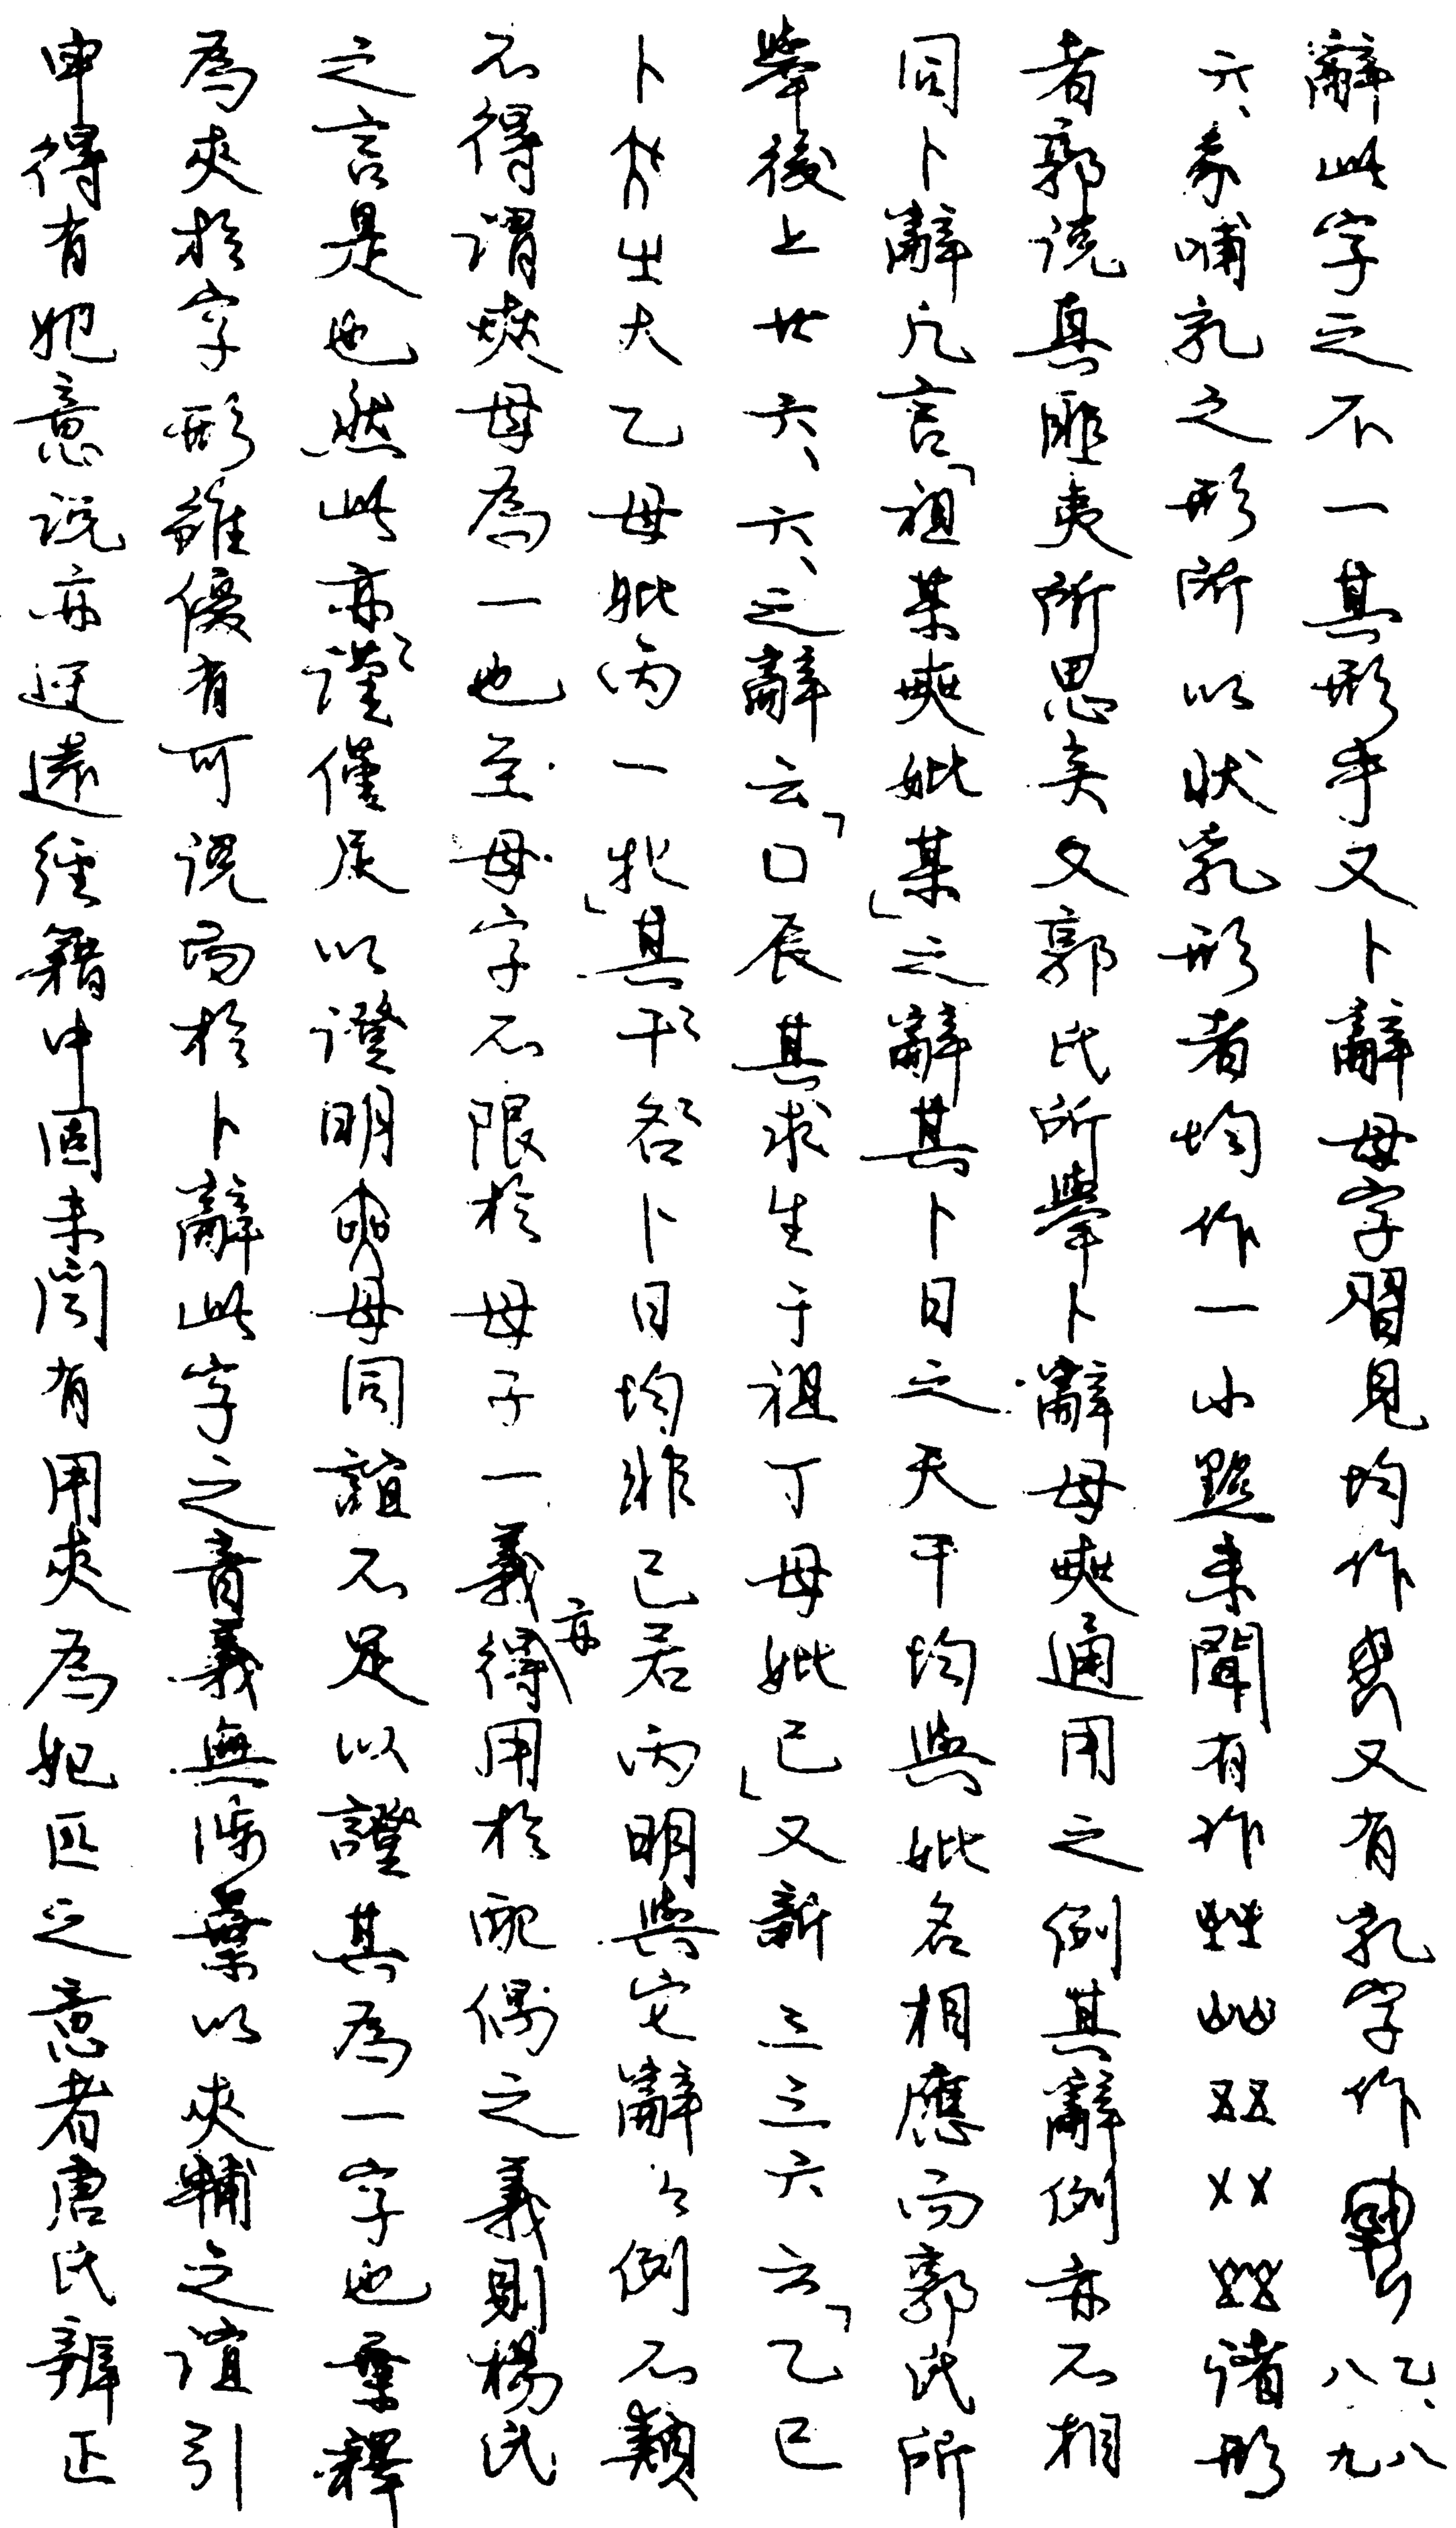 辭此字之不一其形乎又卜辭母字習見均作又有乳字作乙、八八九
六、象哺乳之形所以狀乳形者均作一小點未聞有作諸形
者郭說真匪夷所思矣又郭氏所舉卜辭母奭通用之例其辭例亦不相
同卜辭凡言「祖某奭妣某」之辭其卜日之天干均與妣名相應而郭氏所
舉後上廿六、六、之辭云「口辰其求生于祖丁母妣己」又新三三六云「乙巳
卜㞢大乙母妣丙一牝」其干名卜日均非己若丙明與它辭之例不類
不得謂奭母為一也至母字不限於母子一義亦得用於配偶之義則楊氏
之言是也然此亦謹僅足以證明母同誼不足以證其為一字也葉釋
為夾於字形雖優有可說場於卜辭此字之音義無涉葉以夾輔之誼引
申得有妃意說亦迂遠經籍中固未聞有用夾為妃匹之意者唐氏辨正